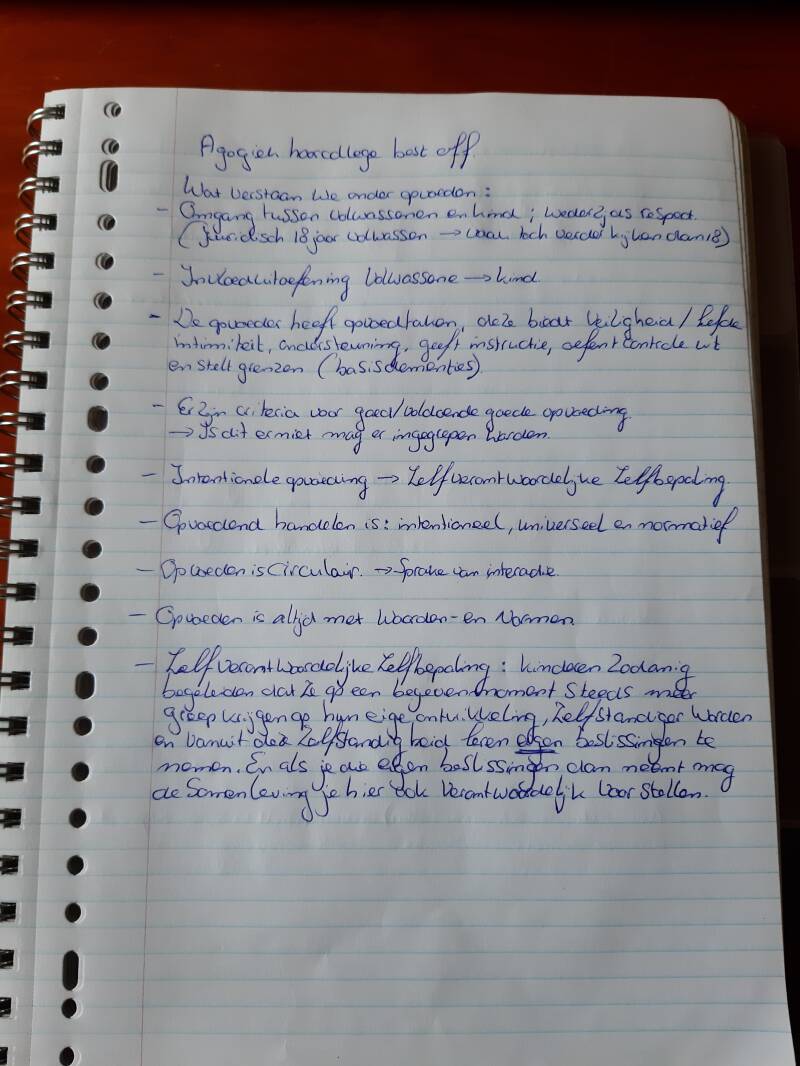 Agogiek hoorcollege best off.
Wat verstaan we onder opvoeden:
- Omgang tussen volwassenen en kind; wederzijds respect.
(Juridisch 18 jaar volwassen → vaak toch verder kijken dan 18)
- Invloeduitoefening Volwassene → kind.
- De opvoeder heeft opvoedtaken, deze biedt veiligheid/liefde
intimiteit, ondersteuning, geeft instructie, oefent controle uit
en stelt grenzen (basisdementies)
- Er zijn criteria voor goed/voldoende goede opvoeding.
→ Is dit er niet mag er ingegrepen worden.
- Intentionele opvoeding → Zelfverantwoordelijke Zelfbepaling.
- Opvoedend handelen is: intentioneel, universeel en normatief
- Opvoeden is Circulair. → Sprake van interactie.
- Opvoeden is altijd met Waarden- en Normen.
- Zelfverantwoordelijke Zelfbepaling: kinderen Zodanig
begeleiden dat ze op een begeven moment Steeds meer
greep krijgen op hun eige ontwikkeling, Zelfstandiger Worden
en vanuit deze Zelfstandigheid leren eigen beslissingen te
nemen. En als je die eigen beslissingen dan neemt mag
de Samenleving je hier ook Verantwoordelijk voor Stellen.